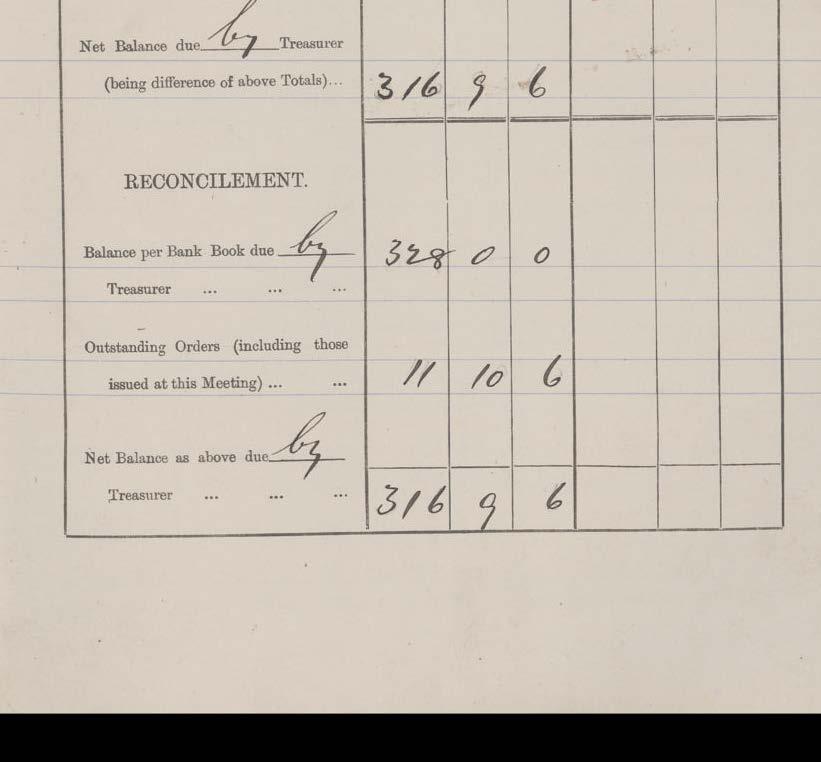 Net Balance due by Treasurer
(being difference of above Totals)... 316 9 6
RECONCILEMENT.
Balance per Bank Book due by 328 0 0
Treasurer ... ... ...
Outstanding Orders (including those
issued at this Meeting) ... ... 11 10 6
Net Balance as above due by
Treasurer ... ... ... 316 9 6